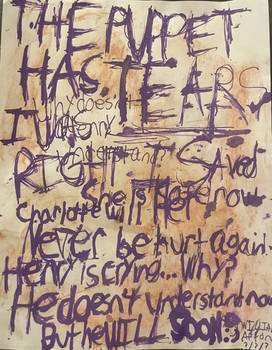 THE PUPPET
HAS TEARS,
Why doesn't
I WAS
Henry
understand?
RIGHT I Saved
She is safe now
Charlotte will
Never be hurt again!
Henry is crying... Why?
He doesn't understand now
But he WILL SOON :)